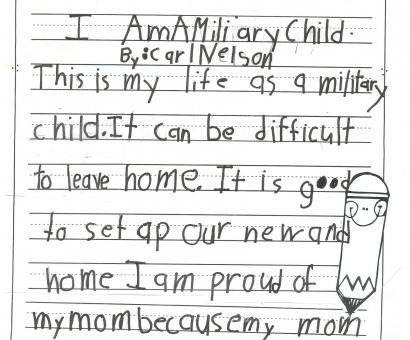 I AmAMiliaryChild.
By:Carl Nelson
This is my life as a military
child. It can be difficult
to leave home. It is good
to set ap our new and
home I am proud of
my mom becausemy mom